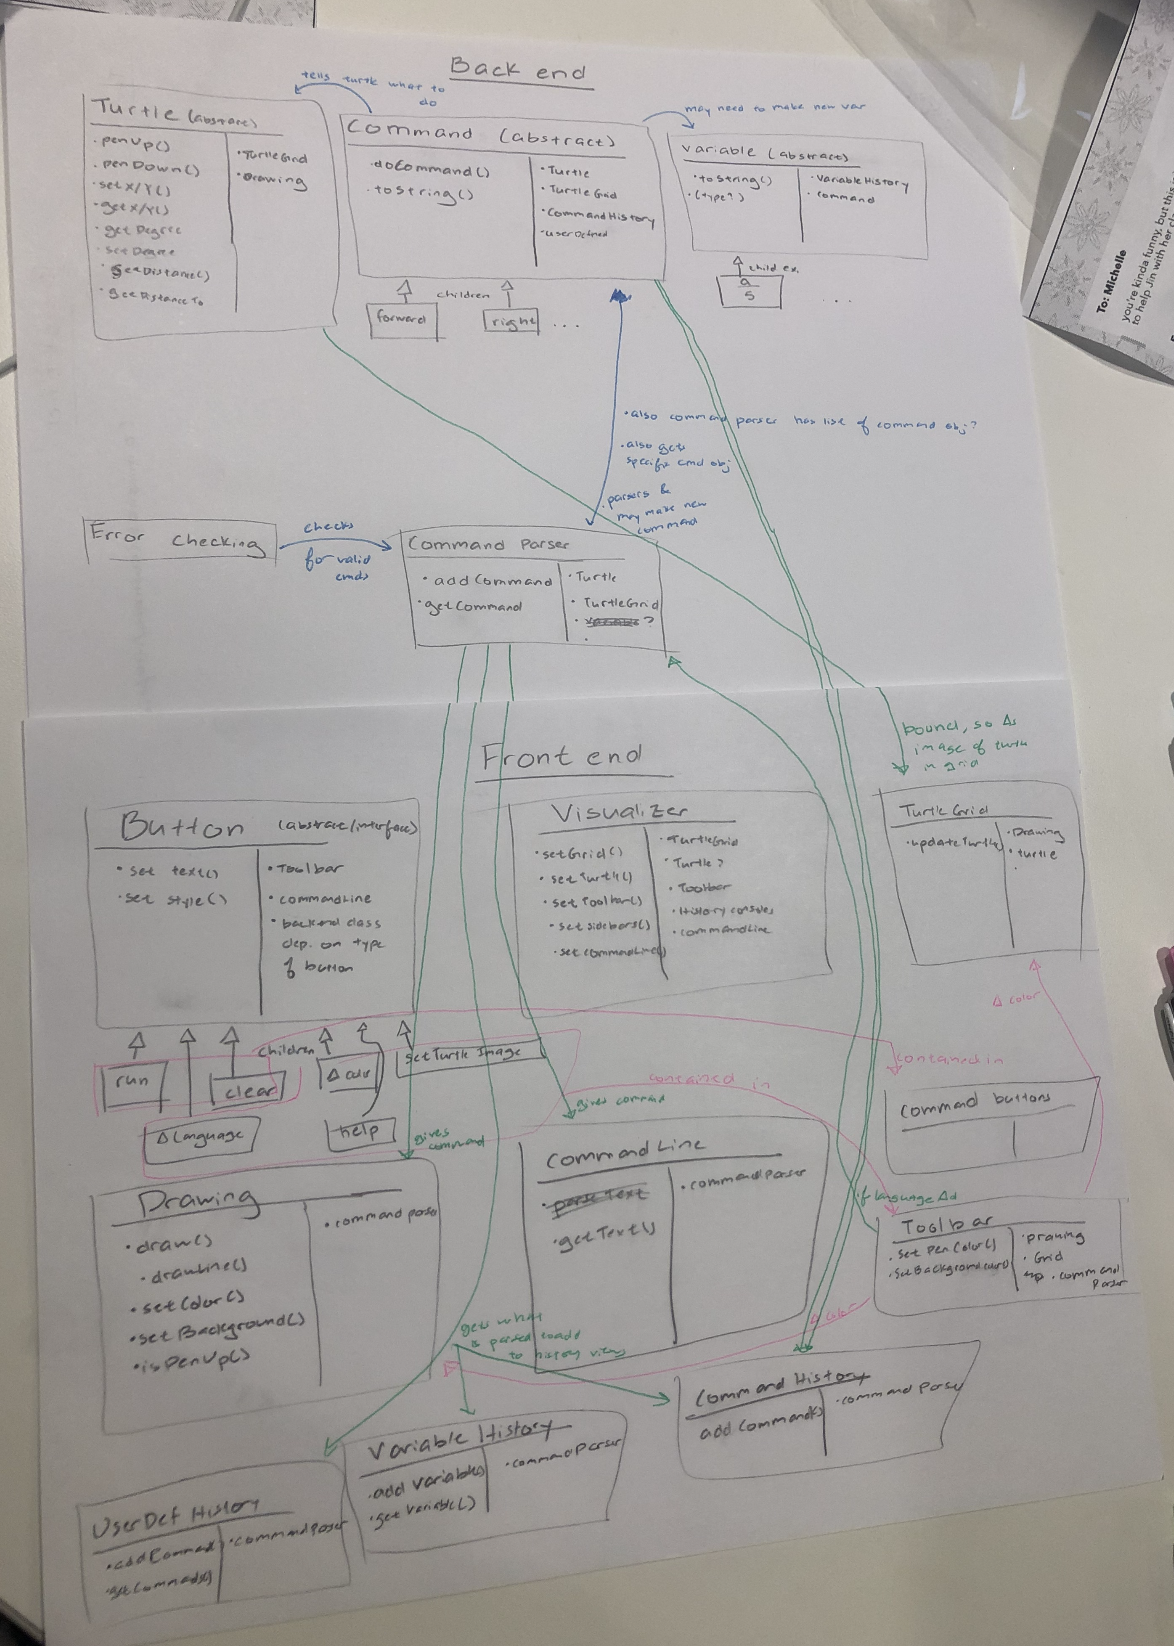 Back end
tells turtle what to
do
may need to make new var
Turtle (abstract)
• penUp()
• penDown()
• setX/Y()
• getX/Y()
• get Degree
• set Degree
• getDistance()
• getDistanceTo
• TurtleGrid
• Drawing
Command (abstract)
• doCommand()
• toString()
• Turtle
• TurtleGrid
• CommandHistory
• userDefined
variable (abstract)
• toString()
• (type?)
• VariableHistory
• command
children
forward
right
...
child ex.
a
5
...
• also command parser has list of command obj?
• also gets
specific cmd obj
• parsers &
may make new
command
Error checking
checks
for valid
cmds
Command Parser
• add Command
• getCommand
• Turtle
• TurtleGrid
• variable ?
bound, so Δs
image of turtle
in grid
Front end
Button (abstract/interface)
• set text()
• set style()
• Toolbar
• commandLine
• backend class
dep. on type
of button
Visualizer
• setGrid()
• setTurtle()
• set Toolbar()
• set sidebars()
• set commandLine()
• TurtleGrid
• Turtle?
• Toolbar
• History consoles
• commandLine
Turtle Grid
• updateTurtle
• Drawing
• turtle
children
run
clear
Δ color
setTurtle Image
Δ Language
help
Δ color
contained in
contained in
gives command
gives
command
Command buttons
Drawing
• draw()
• drawLine()
• setColor()
• setBackground()
• isPenUp()
• command parser
Command Line
• parse Text
• getText()
• commandParser
if language Δd
Toolbar
• set Pen Color()
• setBackgroundcolor()
• Drawing
• Grid
• command
Parser
Δ color
gets what
is parsed to add
to history views
Command History
add Commands
• command Parser
Variable History
• add Variables
• get Variable()
• commandParser
UserDef History
• add Command
• getCommands()
• commandParser
To: Michelle
you're kinda funny, but this
to help Jin with her